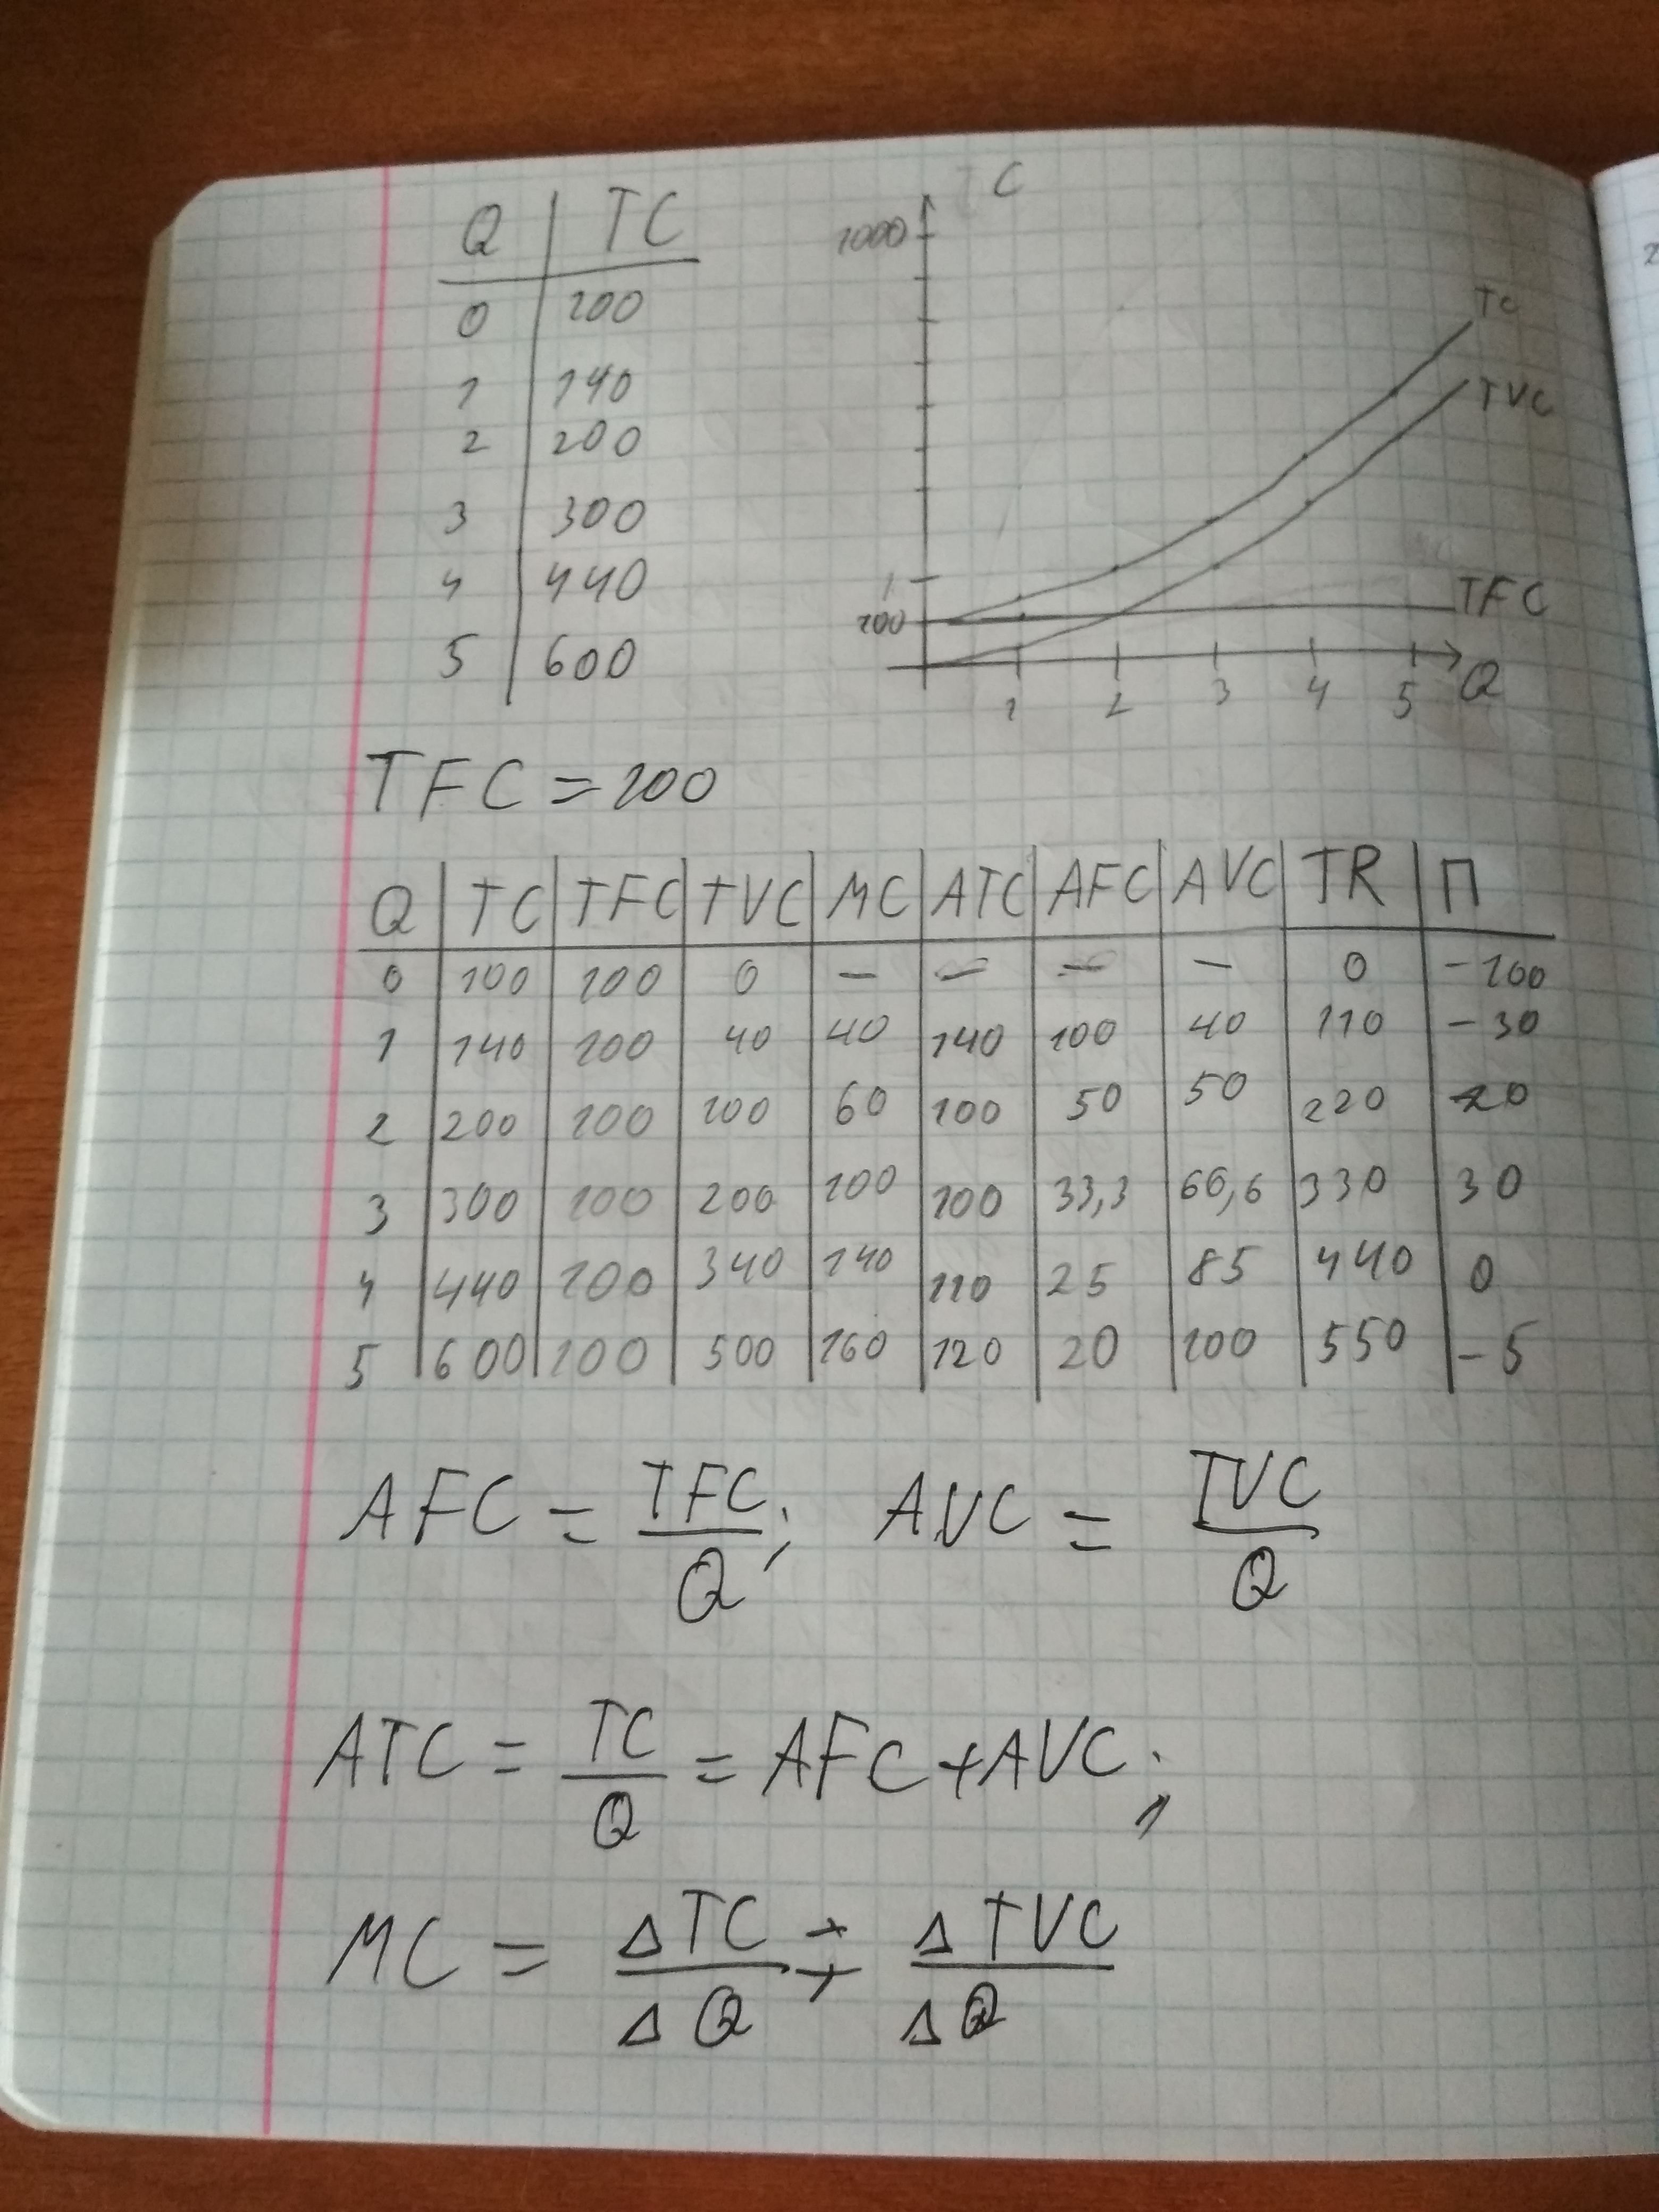 Q | TC
0 | 100
1 | 140
2 | 200
3 | 300
4 | 440
5 | 600
C
1000
TC
TVC
100
TFC
1 2 3 4 5 Q
TFC = 100
Q | TC | TFC | TVC | MC | ATC | AFC | AVC | TR | П
0 | 100 | 100 | 0 | – | – | – | – | 0 | -100
1 | 140 | 100 | 40 | 40 | 140 | 100 | 40 | 110 | -30
2 | 200 | 100 | 100 | 60 | 100 | 50 | 50 | 220 | 20
3 | 300 | 100 | 200 | 100 | 100 | 33,3 | 66,6 | 330 | 30
4 | 440 | 100 | 340 | 140 | 110 | 25 | 85 | 440 | 0
5 | 600 | 100 | 500 | 160 | 120 | 20 | 100 | 550 | -5
AFC = TFC/Q; AVC = TVC/Q
ATC = TC/Q = AFC + AVC;
MC = ΔTC/ΔQ = ΔTVC/ΔQ